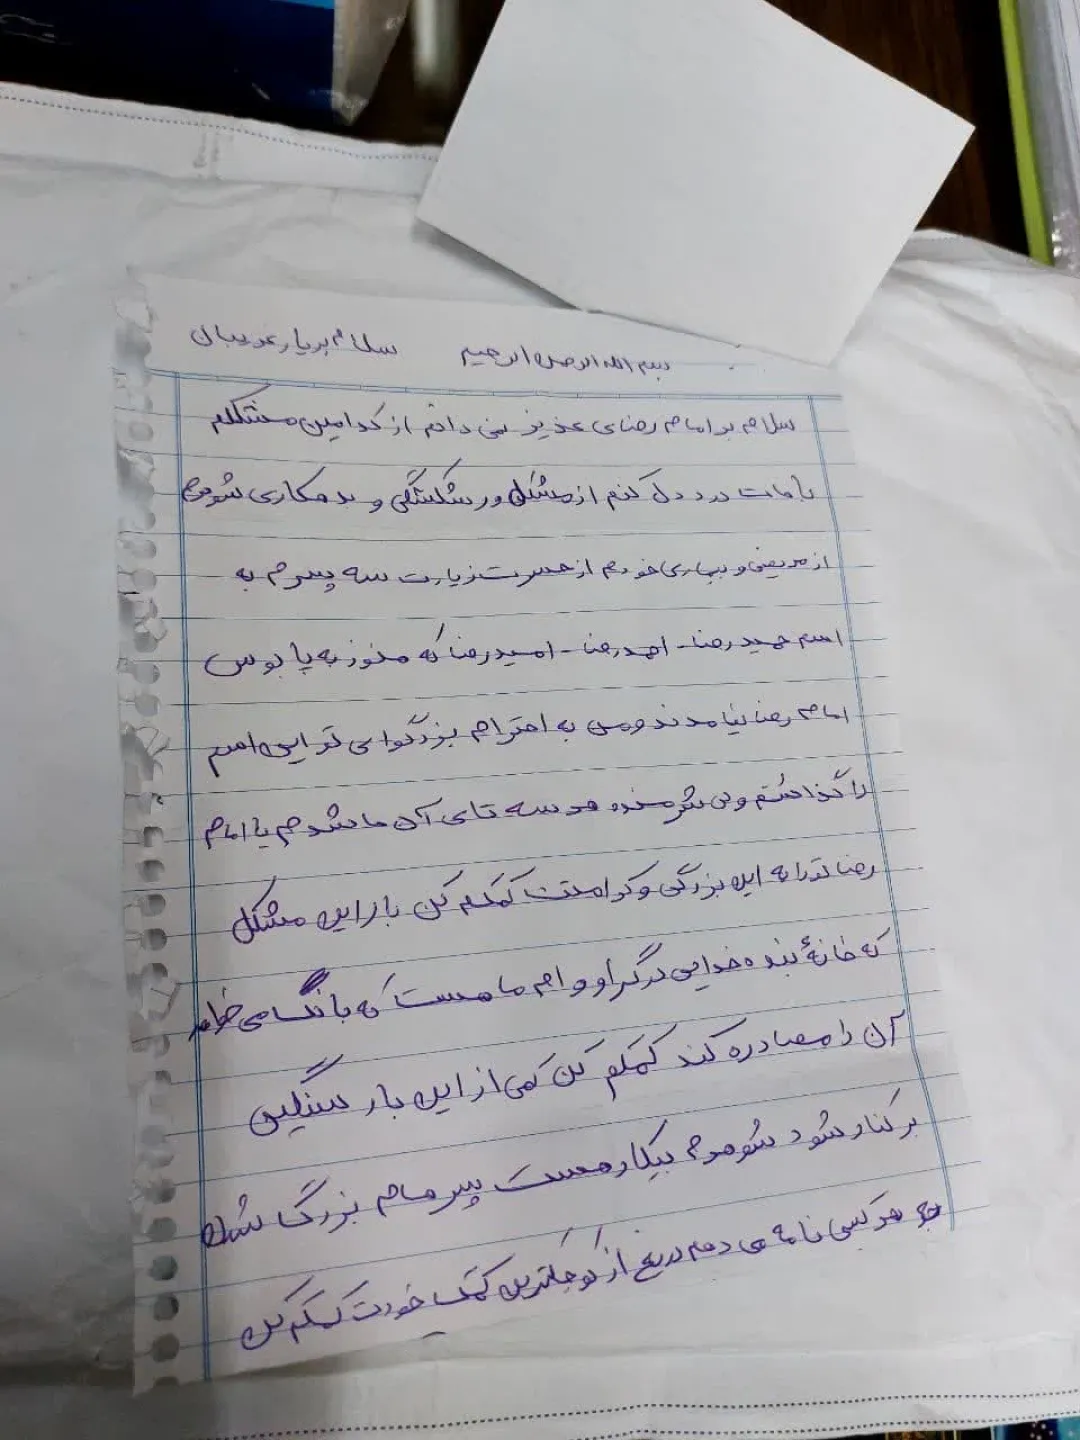 بسم الله الرحمن الرحیم سلام بر یار غریبان
سلام بر امام رضای عزیز نمی دانم از کدامین مشکلم
باهات درد دل کنم از مشکل ورشکستگی و بدهکاری شوهرم
از مریضی و بیماری خودم از حسرت زیارت سه پسرم به
اسم حمیدرضا - احمدرضا - امیدرضا که هنوز به پا بوس
امام رضا نیامدند و من به احترام بزرگواری تو این اسم
را گذاشتم ولی شرمنده هر سه تای آن ها شدم یا امام
رضا تو را به این بزرگی و کرامتت کمکم کن بار این مشکل
که خانهٔ بنده خدایی در گراو وام ما هست که بانک می خواهد
آن را مصادره کند کمکم کن کمی از این بار سنگین
بر کنار شود شوهرم بیکار هست پسرهام بزرگ شده
به هر کسی نامه می دهم دریغ از کوچکترین کمک خودت کمکم کن